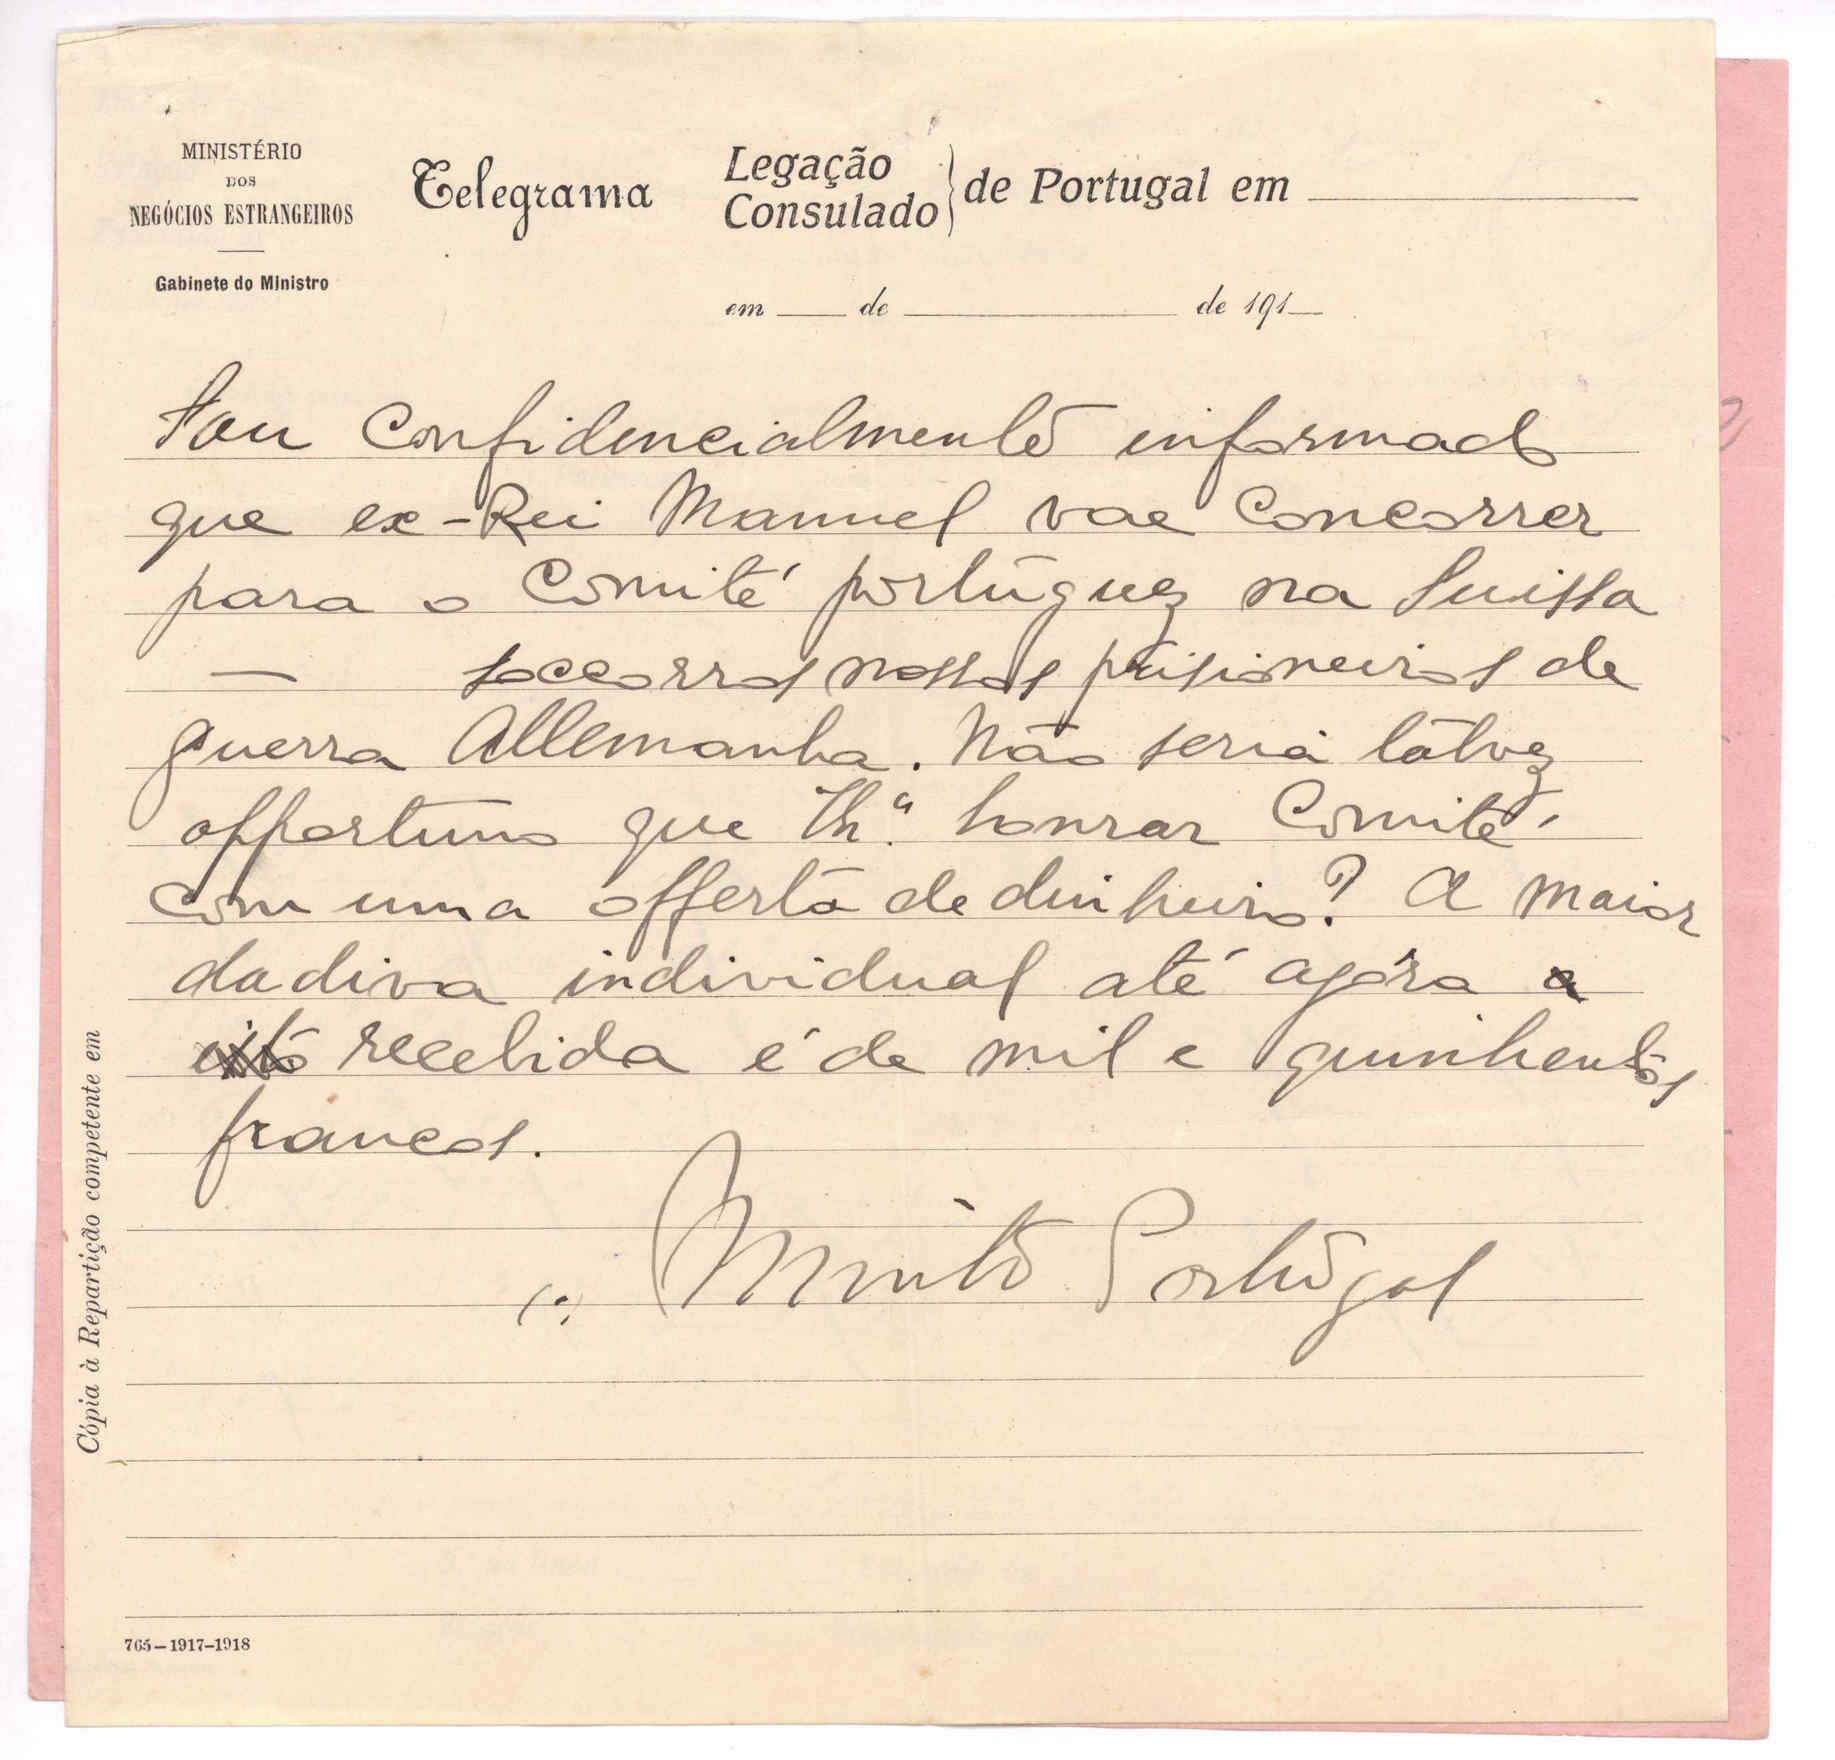 MINISTÉRIO
DOS
NEGÓCIOS ESTRANGEIROS
Gabinete do Ministro
Telegrama
Legação
Consulado
de Portugal em
em de de 191
Sou confidencialmente informado
que ex-Rei Manuel vae concorrer
para o Comité portuguez na Suissa
— soccorros nossos prisioneiros de
guerra Allemanha. Não seria talvez
opportuno que honrar Comité
com uma offerta de dinheiro? A maior
dadiva individual até agora
recebida é de mil e quinhentos
francos.
(a) Portugal
Cópia à Repartição competente em
765—1917-1918